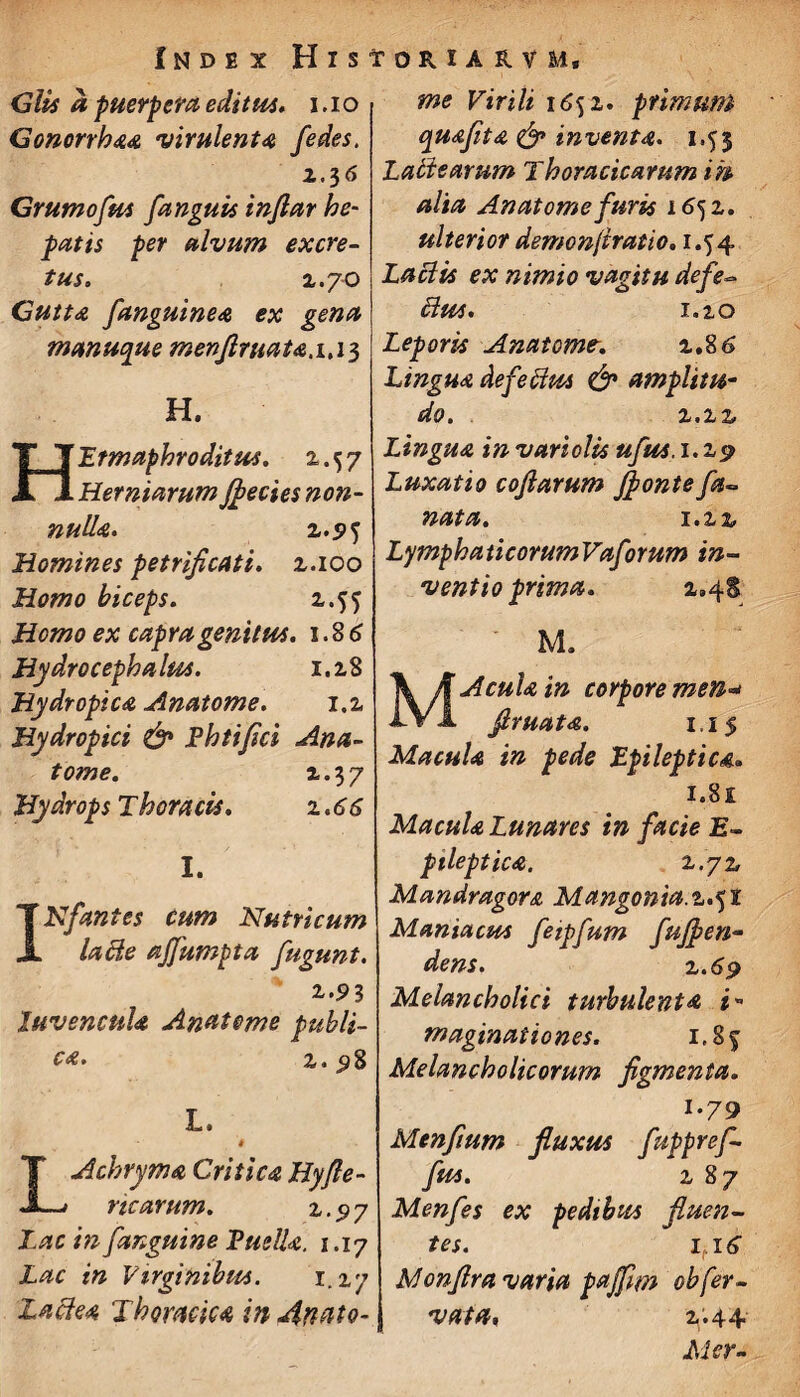 INDEX HISTORIARVM.
Glis à puerpera editus. 1.10
Gonorrhææ virulentæ sedes.
2.36
Grumosus sanguis instar he-
patis per alvum excre-
tus. 2.70
Guttæ sanguineæ ex gena
manuque menstruatæ. 1.13
H.
HErmaphroditus. 2.57
Herniarum species non-
nullæ. 2.95
Homines petrificati. 2.100
Homo biceps. 2.55
Homo ex capra genitus. 1.86
Hydrocephalus. 1.28
Hydropicæ Anatome. 1.2
Hydropici & Phtisici Ana-
tome. 2.37
Hydrops Thoracis. 2.66
I.
INfantes cum Nutricum
lacte assumpta fugunt.
2.93
Iuvenculæ Anatome publi-
cæ. 2. 98
L.
LAchrymæ Criticæ Hyste-
ricarum. 2.97
Lac in sanguine Puellæ. 1.17
Lac in Virginibus. 1.27
Lacteæ Thoracicæ in Anato-
me Virili 1652. primum
quæsitæ & inventæ. 1.53
Lactearum Thoracicarum in
alia Anatome furis 1652.
ulterior demonstratio. 1.54
Lactis ex nimio vagitu defe-
ctus. 1.20
Leporis Anatome. 2.86
Linguæ defectus & amplitu-
do. 2.22
Lingua in variolis usus. 1.29
Luxatio costarum sponte sa-
nata. 1.22
Lymphaticorum Vasorum in-
ventio prima. 2.48
M.
MAculæ in corpore men-
struatæ. 1.15
Maculæ in pede Epilepticæ.
1.81
Maculæ Lunares in facie E-
pilepticæ. 2.72
Mandragoræ Mangonia. 2.51
Maniacus seipsum suspen-
dens. 2.69
Melancholici turbulentæ i-
maginationes. 1.85
Melancholicorum figmenta.
1.79
Mensium fluxus suppres-
sus. 2 87
Menses ex pedibus fluen-
tes. 1.16
Monstra varia passim obser-
vata, 2.44
Mer-